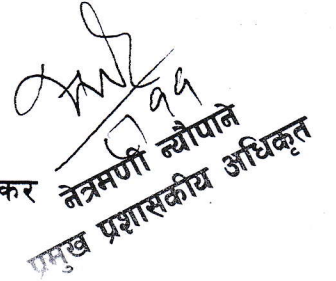 कर
नेत्रमणी न्यौपाने
प्रमुख प्रशासकीय अधिकृत